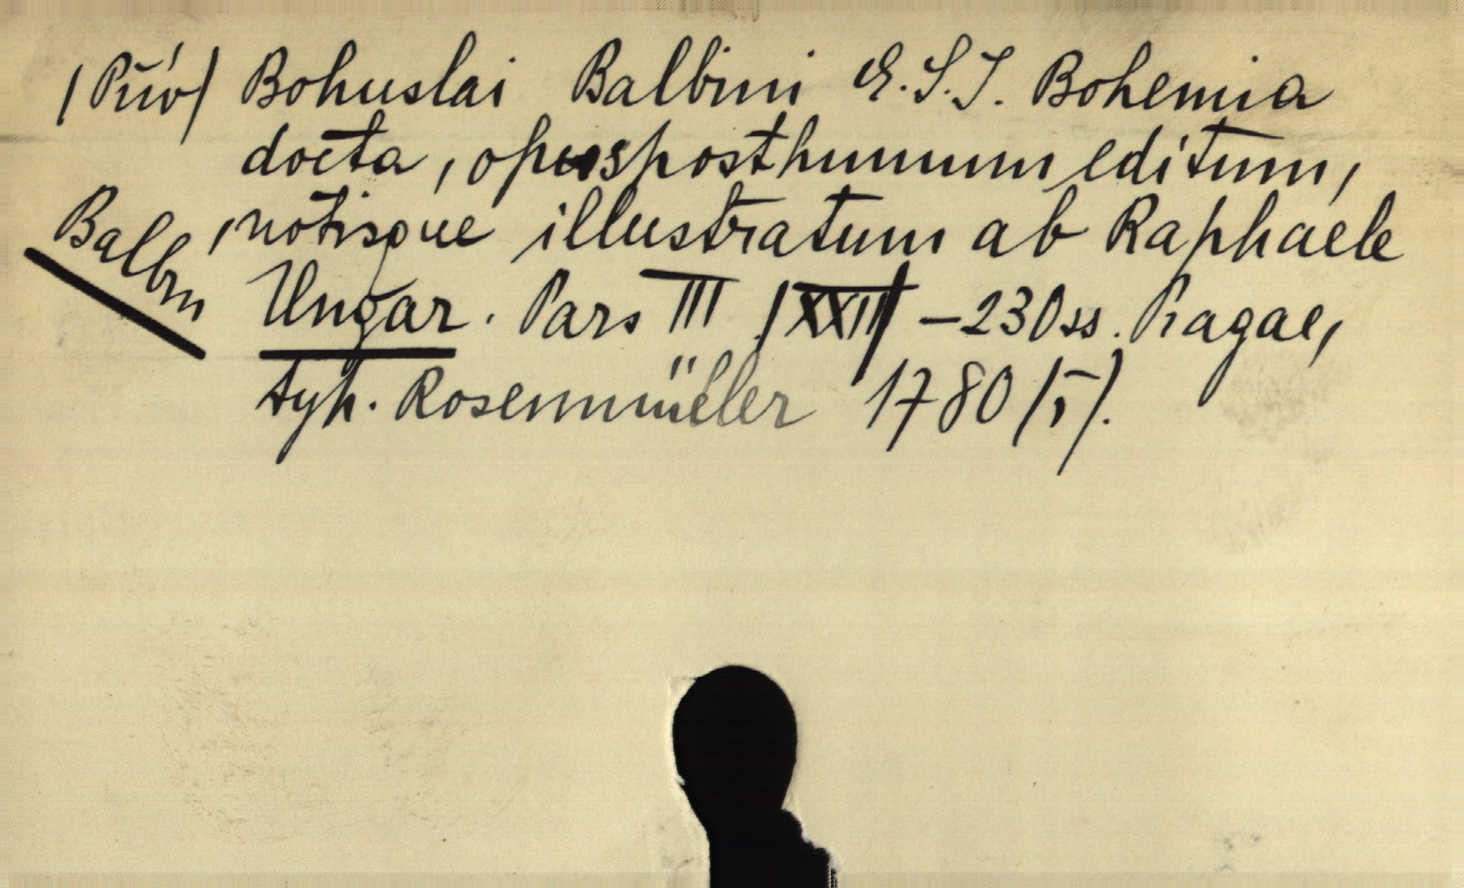 (Přív) Bohuslai Balbini E.S.J. Bohemia
docta, opus posthumum editum,
Balbín
notisque illustratum ab Raphaele
Ungar. Pars III (XXII) – 230 ss. Pragae,
typ. Rosenmüller 1780 (5).